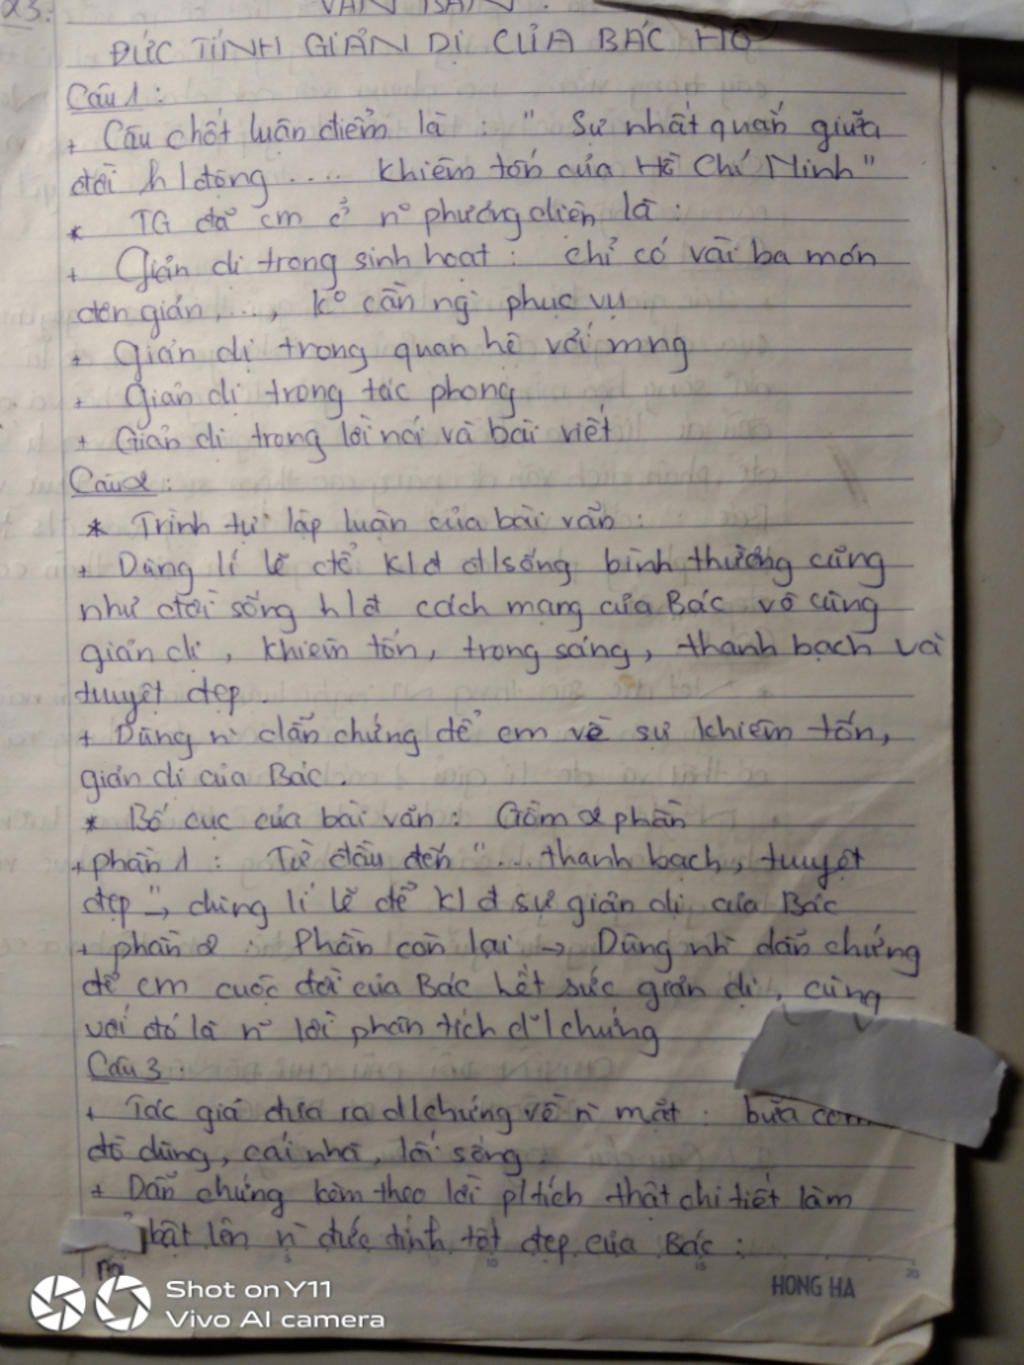 23: VĂN BẢN:
ĐỨC TÍNH GIẢN DỊ CỦA BÁC HỒ
Câu 1:
+ Câu chốt luận điểm là : " Sự nhất quán giữa
đời h/động .... khiêm tốn của Hồ Chí Minh"
* TG đã cm ở n~ phương diện là:
+ Giản dị trong sinh hoạt: chỉ có vài ba món
đơn giản, ..., k° cần ng` phục vụ
+ Giản dị trong quan hệ với mng
+ Giản dị trong tác phong
+ Giản dị trong lời nói và bài viết
Câu 2:
* Trình tự lập luận của bài văn:
+ Dùng lí lẽ để k/đ đ/sống bình thường cũng
như đời sống h/đ cách mạng của Bác vô cùng
giản dị, khiêm tốn, trong sáng, thanh bạch và
tuyệt đẹp.
+ Dùng n~ dẫn chứng để cm về sự khiêm tốn,
giản dị của Bác.
* Bố cục của bài văn: Gồm 2 phần
+ phần 1: Từ đầu đến "... thanh bạch, tuyệt
đẹp" → dùng lí lẽ để k/đ sự giản dị của Bác
+ phần 2: Phần còn lại → Dùng nh~ dẫn chứng
để cm cuộc đời của Bác hết sức giản dị, cùng
với đó là n~ lời phân tích d~/chứng
Câu 3
+ Tác giả đưa ra d/chứng về n~ mặt: bữa cơm
đồ dùng, cái nhà, lối sống
+ Dẫn chứng kèm theo lời p/tích thật chi tiết làm
bật lên n~ đức tính tốt đẹp của Bác:
HONG HA
Shot on Y11
Vivo AI camera